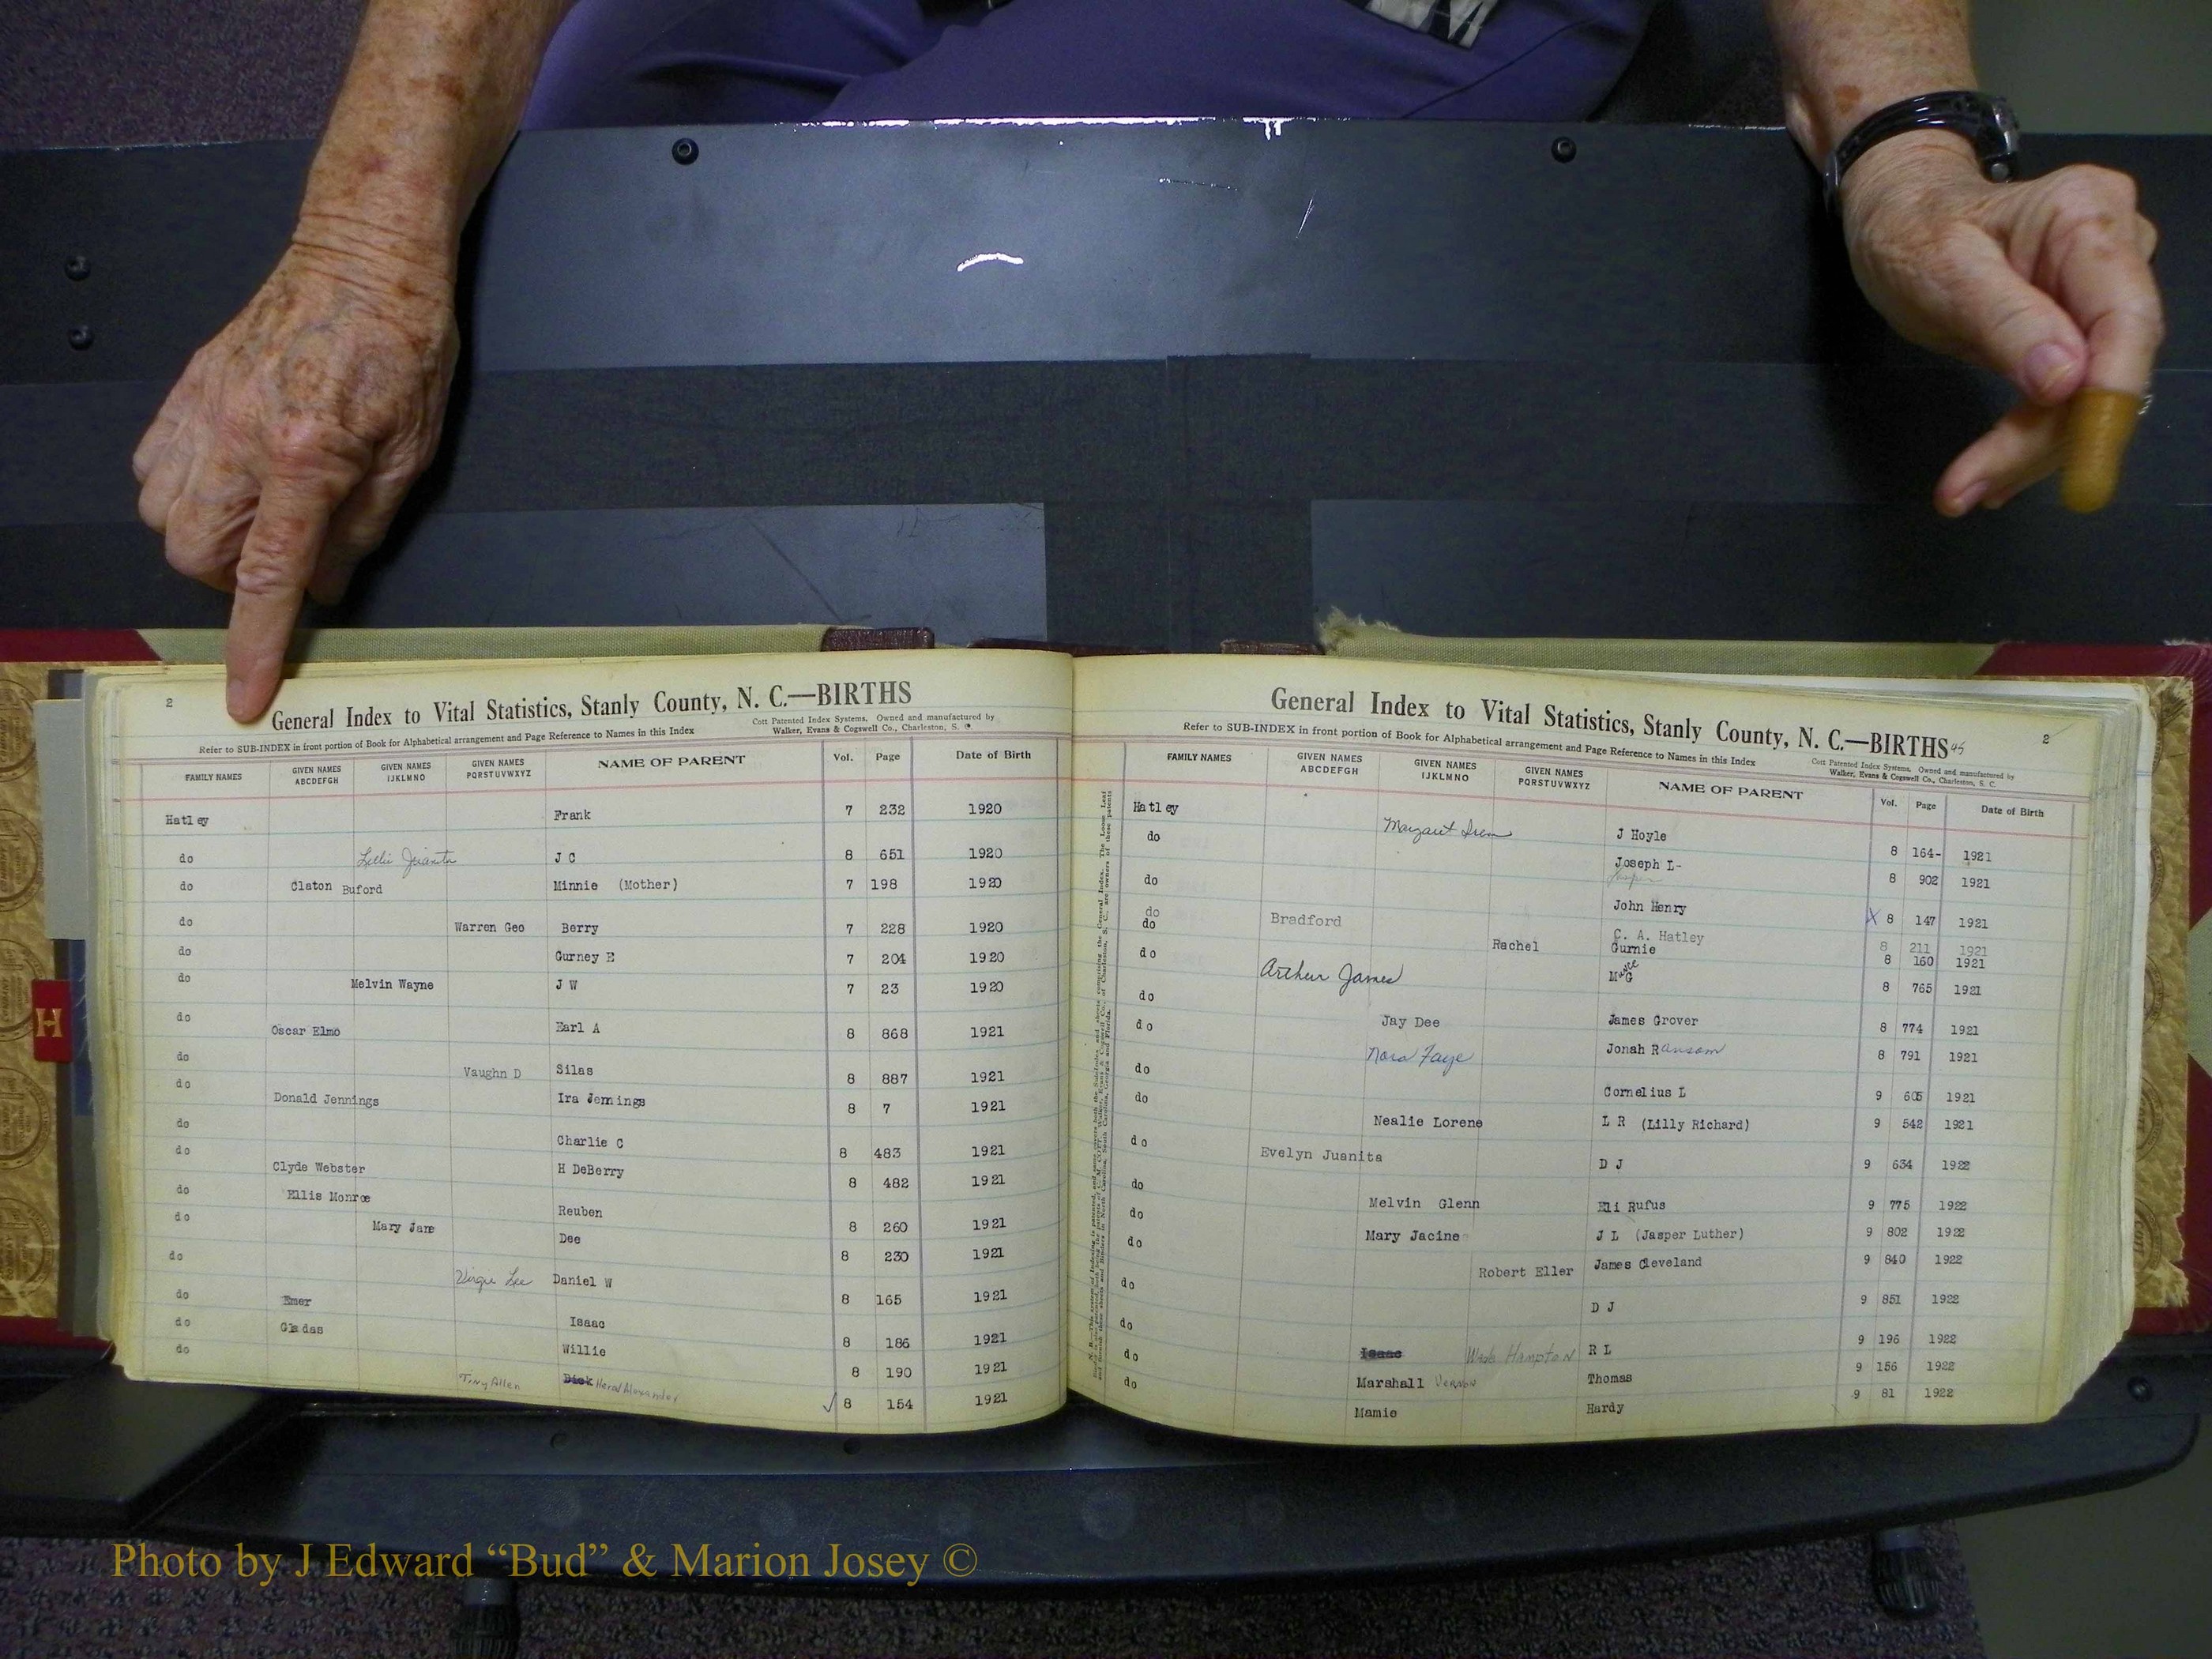 2
General Index to Vital Statistics, Stanly County, N. C.—BIRTHS
Refer to SUB-INDEX in front portion of Book for Alphabetical arrangement and Page Reference to Names in this Index
Cott Patented Index Systems, Owned and manufactured by
Walker, Evans & Cogswell Co., Charleston, S. C.
FAMILY NAMES GIVEN NAMES ABCDEFGH GIVEN NAMES IJKLMNO GIVEN NAMES PQRSTUVWXYZ NAME OF PARENT Vol. Page Date of Birth
Hatley Frank 7 232 1920
do Lillie Juanita J C 8 651 1920
do Claton Buford Minnie (Mother) 7 198 1920
do Warren Geo Berry 7 228 1920
do Gurney E 7 204 1920
do Melvin Wayne J W 7 23 1920
do Oscar Elmo Earl A 8 868 1921
do Vaughn D Silas 8 887 1921
do Donald Jennings Ira Jennings 8 7 1921
do Charlie C 8 483 1921
do Clyde Webster H DeBerry 8 482 1921
do Ellis Monroe Reuben 8 260 1921
do Mary Jane Dee 8 230 1921
do Virgie Lee Daniel W 8 165 1921
do Emer Isaac 8 186 1921
do Gladas Willie 8 190 1921
do Tiny Allen Dick Heral Alexander 8 154 1921
H
General Index to Vital Statistics, Stanly County, N. C.—BIRTHS 45
2
Refer to SUB-INDEX in front portion of Book for Alphabetical arrangement and Page Reference to Names in this Index
Cott Patented Index Systems, Owned and manufactured by
Walker, Evans & Cogswell Co., Charleston, S. C.
FAMILY NAMES GIVEN NAMES ABCDEFGH GIVEN NAMES IJKLMNO GIVEN NAMES PQRSTUVWXYZ NAME OF PARENT Vol. Page Date of Birth
Hatley Margaret J Hoyle 8 164- 1921
do Joseph L- Jasper 8 902 1921
do John Henry X 8 147 1921
do Bradford C. A. Hatley 8 211 1921
do Rachel Gurnie 8 160 1921
do Arthur James M G 8 765 1921
do Jay Dee James Grover 8 774 1921
do Nora Faye Jonah Ransom 8 791 1921
do Cornelius L 9 605 1921
do Nealie Lorene L R (Lilly Richard) 9 542 1921
do Evelyn Juanita D J 9 634 1922
do Melvin Glenn Eli Rufus 9 775 1922
do Mary Jacine J L (Jasper Luther) 9 802 1922
do Robert Eller James Cleveland 9 840 1922
do D J 9 851 1922
do Isaac Wade Hampton R L 9 196 1922
do Marshall Vernon Thomas 9 156 1922
do Mamie Hardy 9 81 1922
Photo by J Edward “Bud” & Marion Josey ©